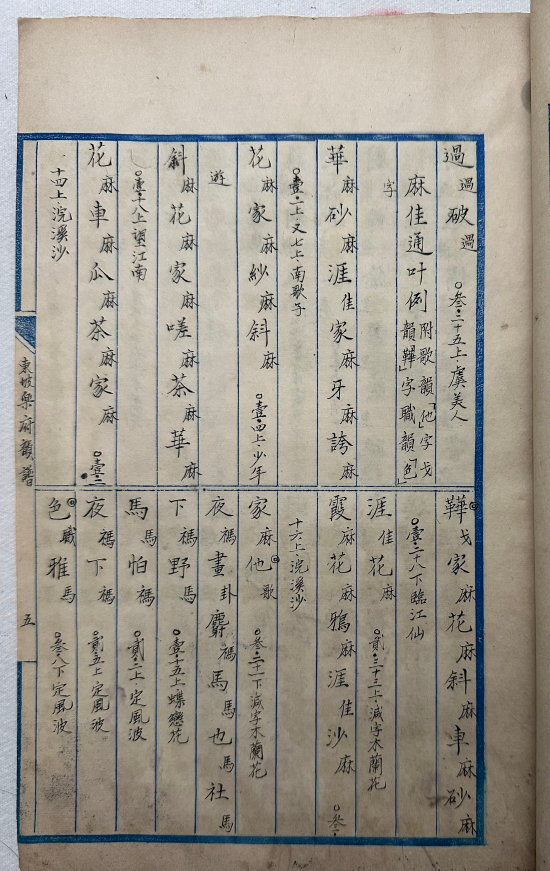 過過破過　○叁·二十五上·虞美人
麻佳通叶例附歌韻「他」字戈韻「鞾」字職韻「色」
字
華麻砂麻涯佳家麻牙麻誇麻
○壹·二上·又七上·南歌子
花麻家麻紗麻斜麻　○壹·四上·少年
遊
斜麻花麻家麻嗟麻茶麻華麻
○壹·十八上望江南
花麻車麻瓜麻茶麻家麻　○壹·二
十四上·浣溪沙
鞾戈家麻花麻斜麻車麻砂麻
○壹·二十八下臨江仙
涯佳花麻　○貳·三十三上·減字木蘭花
霞麻花麻鴉麻涯佳沙麻　○叁·
十六上·浣溪沙
家麻他歌　○叁·二十一下減字木蘭花
夜禡畫卦麝禡馬馬也馬社馬
下禡野馬　○壹·十五上蝶戀花
馬馬怕禡　○貳·二上·定風波
夜禡下禡　○貳·五上·定風波
色職雅馬　○叁·八下·定風波
東坡樂府韻譜
五